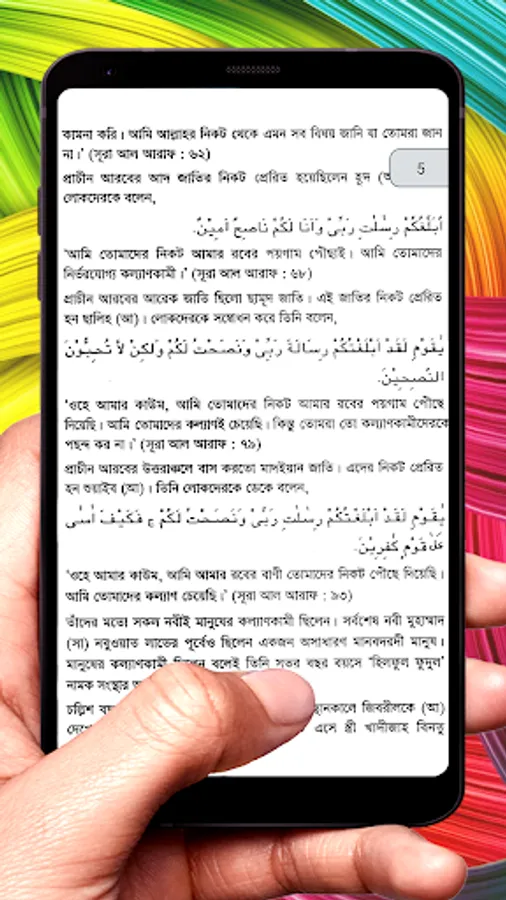 কামনা করি। আমি আল্লাহর নিকট থেকে এমন সব বিষয় জানি যা তোমরা জান
না।' (সূরা আল আরাফ : ৬২)
প্রাচীন আরবের আদ জাতির নিকট প্রেরিত হয়েছিলেন হূদ
5
লোকদেরকে বলেন,
اُبَلِّغُكُمْ رِسٰلٰتِ رَبِّىْ وَاَنَا لَكُمْ نَاصِحٌ اَمِيْنٌ.
'আমি তোমাদের নিকট আমার রবের পয়গাম পৌঁছাই। আমি তোমাদের
নির্ভরযোগ্য কল্যাণকামী।' (সূরা আল আরাফ : ৬৮)
প্রাচীন আরবের আরেক জাতি ছিলো ছামূদ জাতি। এই জাতির নিকট প্রেরিত
হন ছালিহ (আ)। লোকদেরকে সম্বোধন করে তিনি বলেন,
يٰقَوْمِ لَقَدْ اَبْلَغْتُكُمْ رِسَالَةَ رَبِّىْ وَنَصَحْتُ لَكُمْ وَلٰكِنْ لاَّ تُحِبُّوْنَ
النّٰصِحِيْنَ.
'ওহে আমার কাউম, আমি তোমাদের নিকট আমার রবের পয়গাম পৌঁছে
দিয়েছি। আমি তোমাদের কল্যাণই চেয়েছি। কিন্তু তোমরা তো কল্যাণকামীদেরকে
পছন্দ কর না।' (সূরা আল আরাফ : ৭৯)
প্রাচীন আরবের উত্তরাঞ্চলে বাস করতো মাদইয়ান জাতি। এদের নিকট প্রেরিত
হন শুয়াইব (আ)। তিনি লোকদেরকে ডেকে বলেন,
يٰقَوْمِ لَقَدْ اَبْلَغْتُكُمْ رِسٰلٰتِ رَبِّىْ وَنَصَحْتُ لَكُمْ ج فَكَيْفَ اٰسٰى
عَلٰى قَوْمٍ كٰفِرِيْنَ.
'ওহে আমার কাউম, আমি আমার রবের বাণী তোমাদের নিকট পৌঁছে দিয়েছি।
আমি তোমাদের কল্যাণ চেয়েছি।' (সূরা আল আরাফ : ৯৩)
তাঁদের মতো সকল নবীই মানুষের কল্যাণকামী ছিলেন। সর্বশেষ নবী মুহাম্মাদ
(সা) নবুওয়াত লাভের পূর্বেও ছিলেন একজন অসাধারণ মানবদরদী মানুষ।
মানুষের কল্যাণকামী ছিলেন বলেই তিনি সতর বছর বয়সে 'হিলফুল ফুদূল'
নামক সংস্থার
চল্লিশ জিবরীলকে (আ)
এসে স্ত্রী খাদীজাহ বিনতু